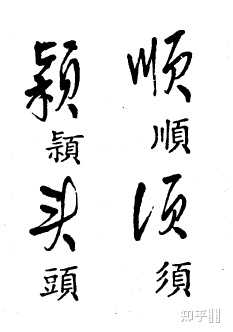 顺
順
须
須
颖
頴
头
頭
知乎